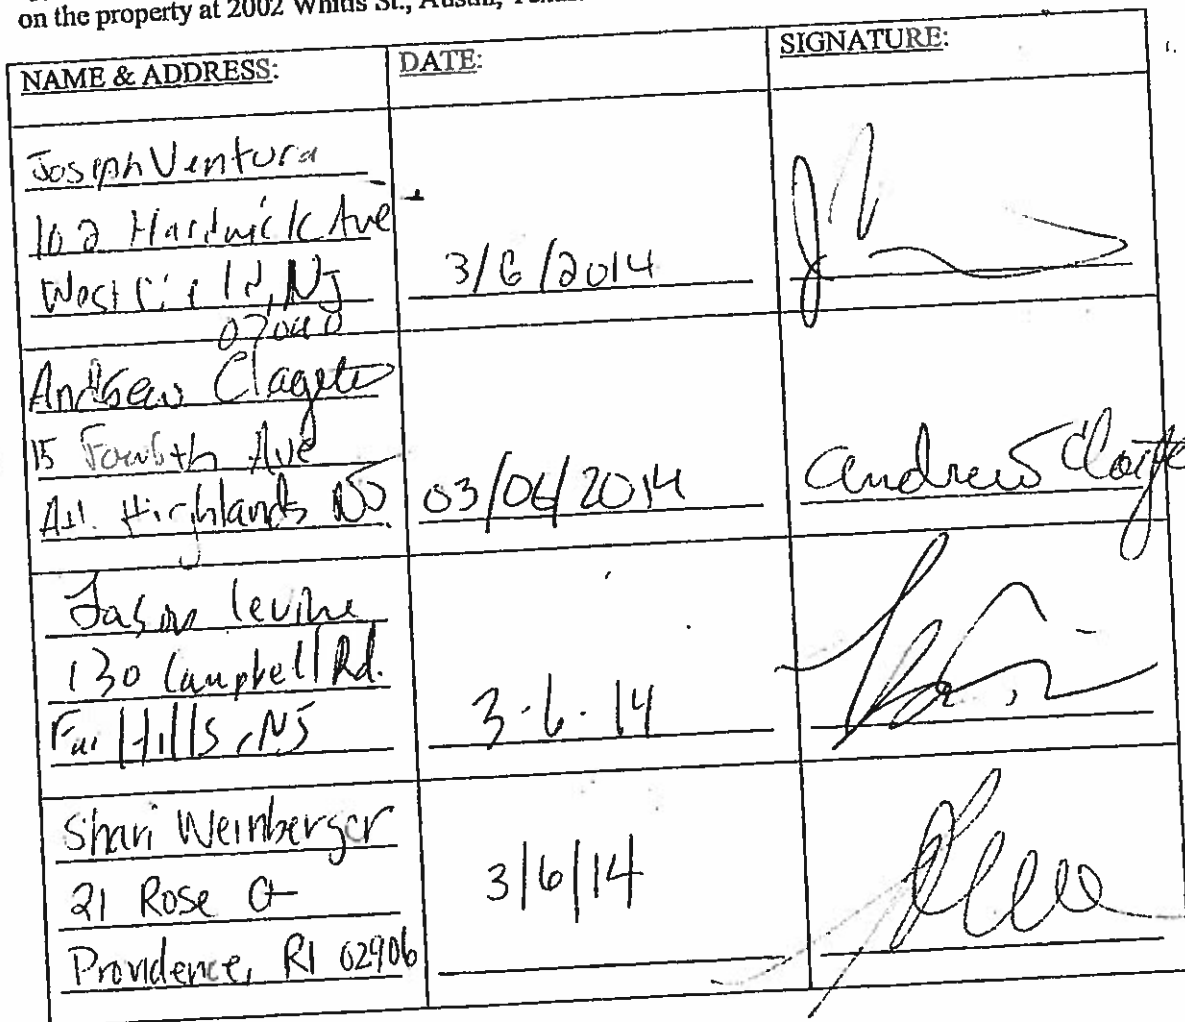 on the property at 2002 Whitis St., Austin, Texas.
NAME & ADDRESS: DATE: SIGNATURE:
Joseph Ventura
102 Hardwick Ave
Westfield, NJ 3/6/2014
Andrew
15 Fourth Ave
Atl. Highlands NJ 03/06/2014 Andrew
Jason Levine
130 Campbell Rd.
Far Hills, NJ 3-6-14
Shari Weinberger
21 Rose Ct 3/6/14
Providence, RI 02906